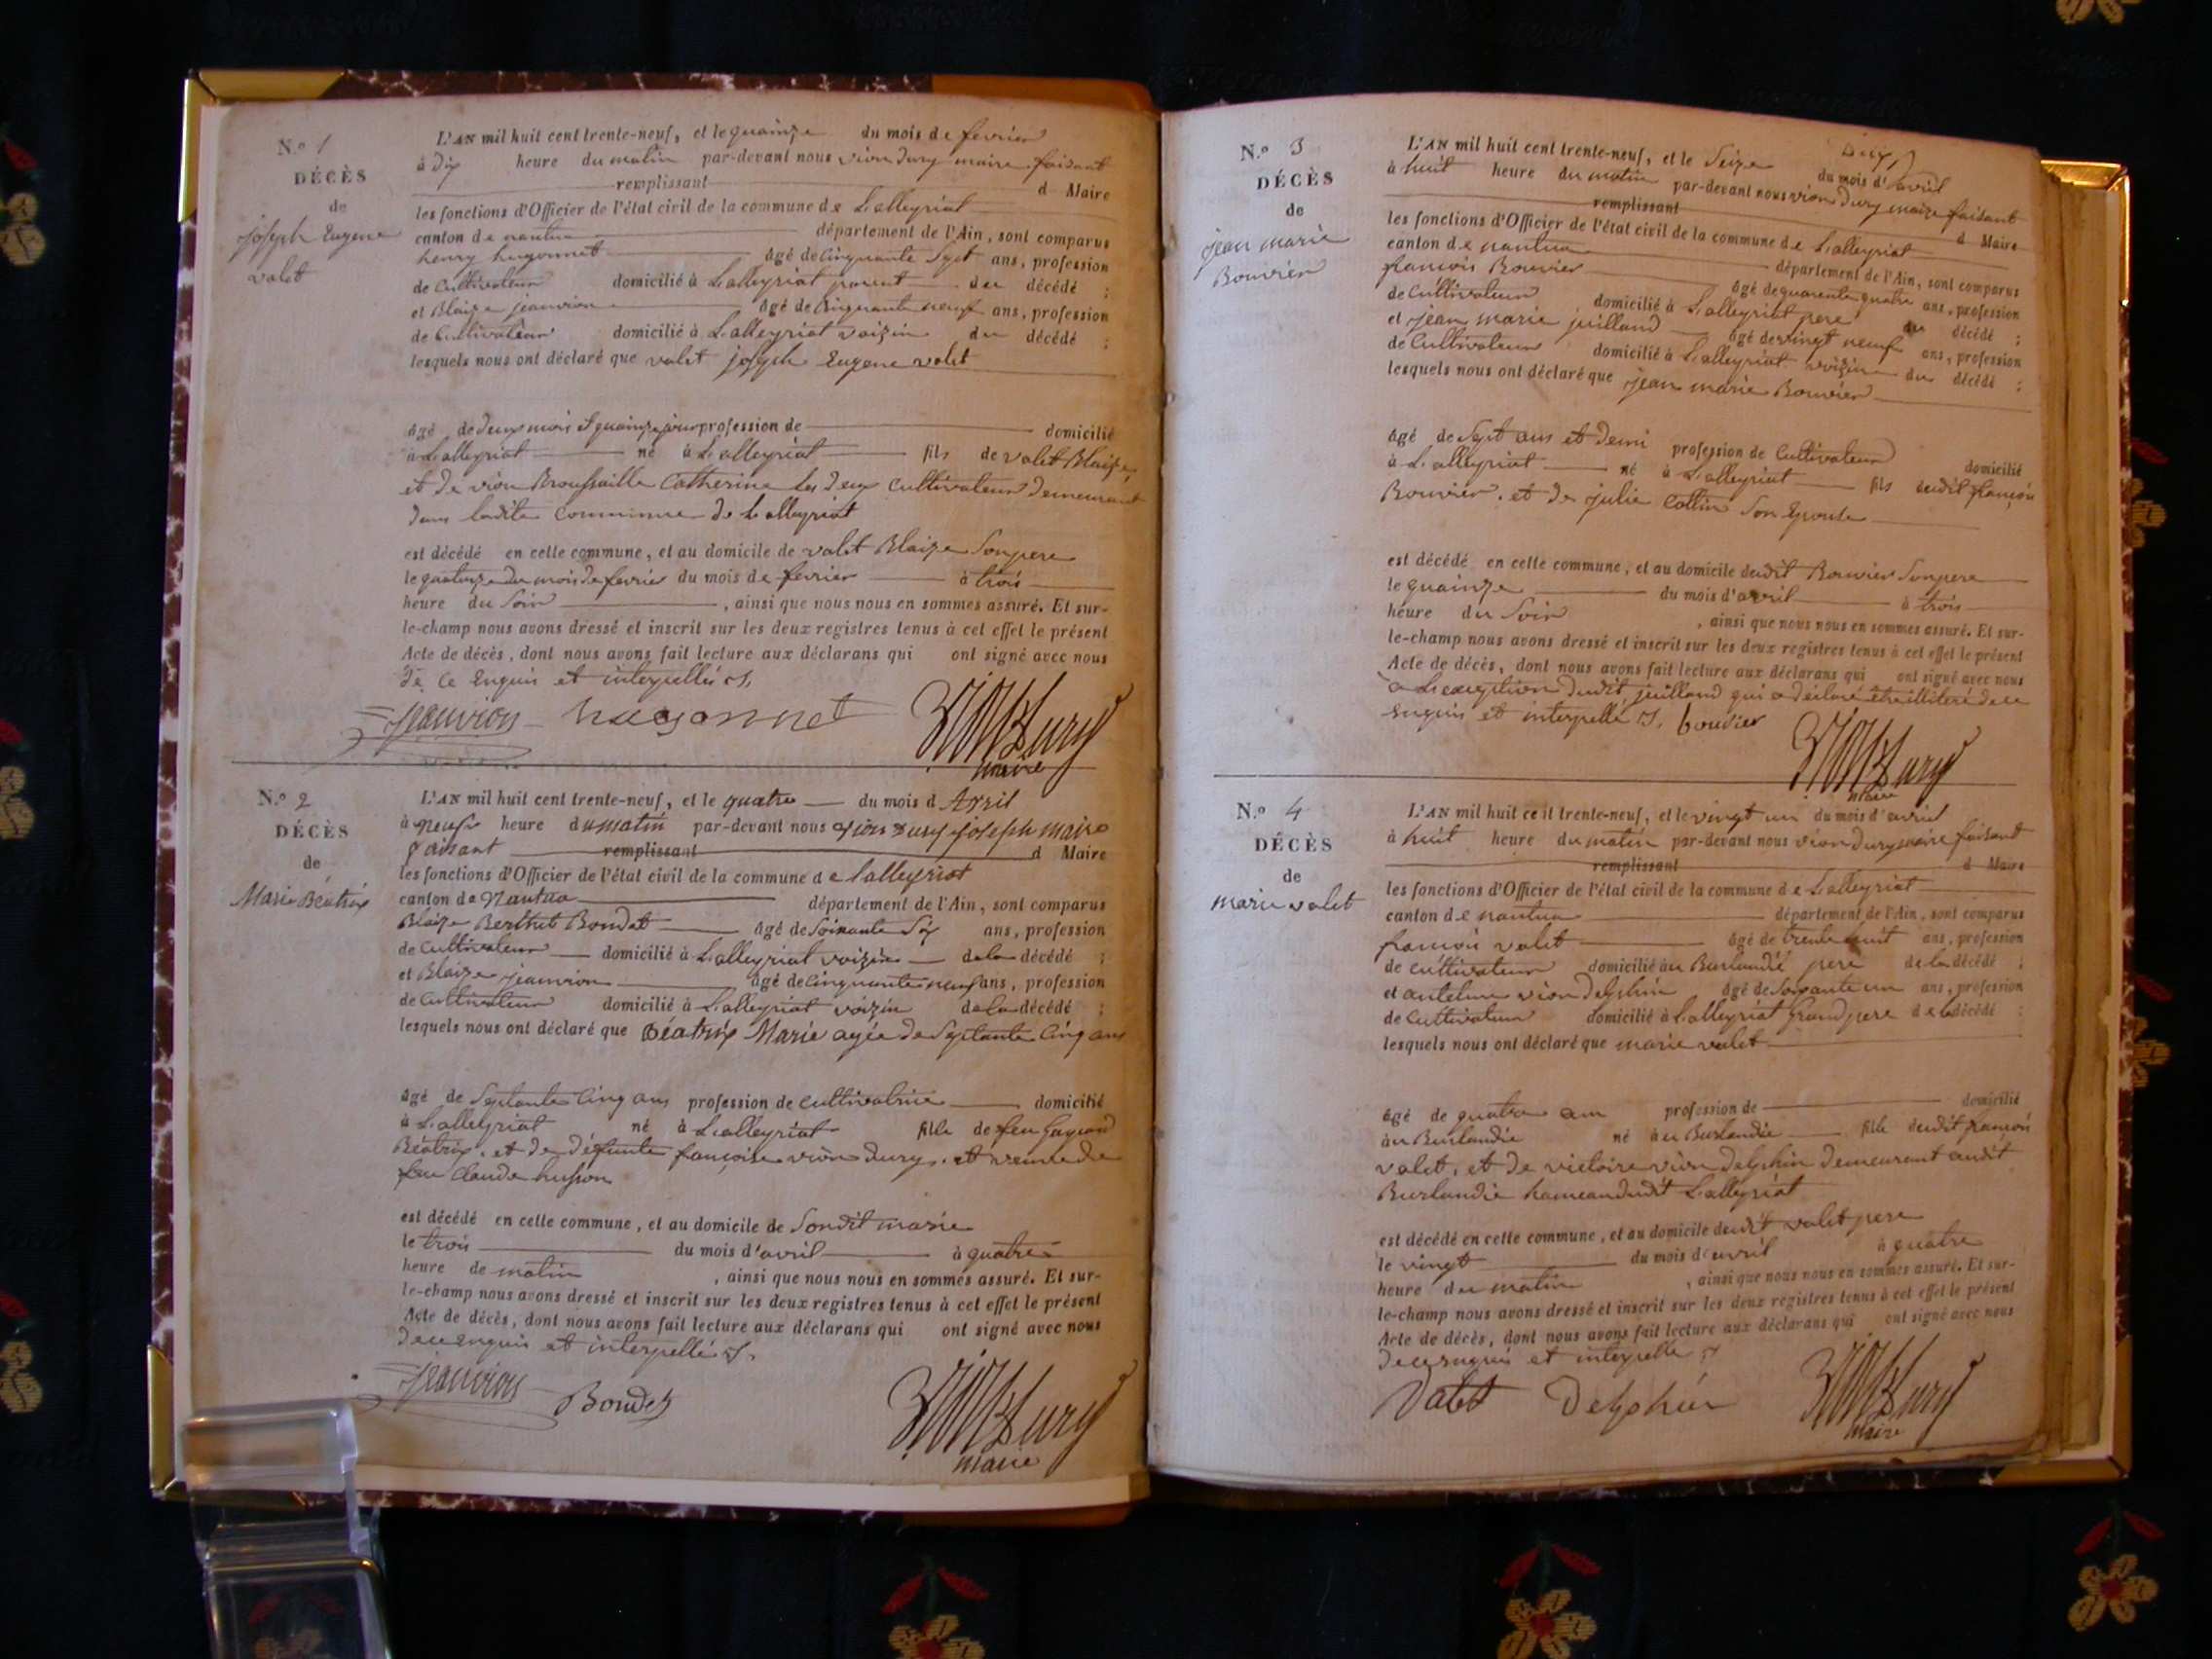 N.o 1
DÉCÈS
de
joseph Eugene
valet
L'AN mil huit cent trente-neuf, et le quainze du mois de fevrier
à dix heure du matin par-devant nous vion dury maire faisant
remplissant d Maire
les fonctions d'Officier de l'état civil de la commune de Lalleyriat
canton de nantua département de l'Ain, sont comparus
henry hugonnet âgé de cinquante Sept ans, profession
de Cultivateur domicilié à Lalleyriat parent du décédé ;
et Blaize jeanvion âgé de Cinquante neuf ans, profession
de Cultivateur domicilié à Lalleyriat voizin du décédé ;
lesquels nous ont déclaré que valet joseph Eugene valet
âgé de deux mois et quainze jour profession de domicilié
à Lalleyriat né à Lalleyriat fils de valet Blaize,
et de vion Broussaille Catherine les deux Cultivateur demeurant
dans ladite Commune de Lalleyriat
est décédé en cette commune, et au domicile de valet Blaize Son pere
le quatorze du mois de fevrier du mois de fevrier à trois
heure du Soir , ainsi que nous nous en sommes assuré. Et sur-
le-champ nous avons dressé et inscrit sur les deux registres tenus à cet effet le présent
Acte de décès, dont nous avons fait lecture aux déclarans qui ont signé avec nous
de ce Enquis et interpellés
jeanvion hugonnet vion Dury
maire
N.o 2
DÉCÈS
de
Marie Béatrix
L'AN mil huit cent trente-neuf, et le quatre du mois d Avril
à neufs heure du matin par-devant nous vion dury joseph maire
faisant remplissant d Maire
les fonctions d'Officier de l'état civil de la commune de lalleyriat
canton de Nantua département de l'Ain, sont comparus
Blaize Berthet Bondet âgé de Soixante Six ans, profession
de Cultivateur domicilié à Lalleyriat voizin de la décédé ;
et Blaize jeanvion âgé de cinquante neuf ans, profession
de Cultivateur domicilié à Lalleyriat voizin de la décédé ;
lesquels nous ont déclaré que Béatrix Marie agée de Septante Cinq ans
âgé de Septante Cinq ans profession de cultivatrice domicilié
à Lalleyriat né à Lalleyriat fille de feu
Béatrix, et de défunte françoise vion dury, et veuve de
feu Claude husson
est décédé en cette commune, et au domicile de Sondit marie
le trois du mois d'avril à quatre
heure de matin , ainsi que nous nous en sommes assuré. Et sur-
le-champ nous avons dressé et inscrit sur les deux registres tenus à cet effet le présent
Acte de décès, dont nous avons fait lecture aux déclarans qui ont signé avec nous
de ce enquis et interpellés
jeanvion Bondet vion Dury
maire
N.o 3
DÉCÈS
de
jean marie
Bouvier
L'AN mil huit cent trente-neuf, et le Seize du mois d'avril
à huit heure du matin par-devant nous vion dury maire faisant
remplissant d Maire
les fonctions d'Officier de l'état civil de la commune de Lalleyriat
canton de nantua département de l'Ain, sont comparus
françois Bouvier âgé de quarente quatre ans, profession
de Cultivateur domicilié à Lalleyriat pere du décédé ;
et jean marie juilland âgé de vingt neuf ans, profession
de Cultivateur domicilié à Lalleyriat voizin du décédé ;
lesquels nous ont déclaré que jean marie Bouvier
âgé de Sept ans et demi profession de Cultivateur domicilié
à Lalleyriat né à Lalleyriat fils dudit françois
Bouvier, et de julie Cottin Son Epouse
est décédé en cette commune, et au domicile dudit Bouvier Son pere
le quainze du mois d'avril à trois
heure du Soir , ainsi que nous nous en sommes assuré. Et sur-
le-champ nous avons dressé et inscrit sur les deux registres tenus à cet effet le présent
Acte de décès, dont nous avons fait lecture aux déclarans qui ont signé avec nous
a Lexception dudit juilland qui a déclaré être illiteré de ce
enquis et interpellé bouvier
vion Dury
maire
N.o 4
DÉCÈS
de
marie valet
L'AN mil huit cent trente-neuf, et le vingt un du mois d'avril
à huit heure du matin par-devant nous vion dury maire faisant
remplissant d Maire
les fonctions d'Officier de l'état civil de la commune de Lalleyriat
canton de nantua département de l'Ain, sont comparus
françois valet âgé de trente huit ans, profession
de cultivateur domicilié au Burlandié pere de la décédé ;
et antelme vion delphin âgé de Soixante un ans, profession
de Cultivateur domicilié à Lalleyriat Grand pere de la décédé ;
lesquels nous ont déclaré que marie valet
âgé de quatre ans profession de domicilié
au Burlandie né au Burlandie fille dudit françois
valet, et de victoire vion delphin demeurant audit
Burlandie hameau dudit Lalleyriat
est décédé en cette commune, et au domicile dudit valet pere
le vingt du mois d'avril à quatre
heure du matin , ainsi que nous nous en sommes assuré. Et sur-
le-champ nous avons dressé et inscrit sur les deux registres tenus à cet effet le présent
Acte de décès, dont nous avons fait lecture aux déclarans qui ont signé avec nous
de ce enquis et interpellé
Valet Delphin vion Dury
maire